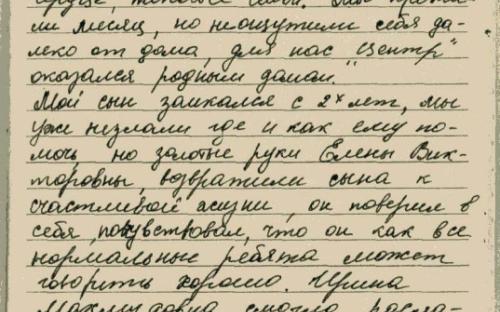 ли месяц, но неощутили себя да-
леко от дома, для нас "Центр"
оказался родным домом.
Мой сын заикался с 2х лет, мы
уже незнали где и как ему по-
мочь, но золотые руки Елены Вик-
торовны, возвратили сына к
счастливой жизни, он поверил в
себя, почувствовал, что он как все
нормальные ребята может
говорить хорошо. Ирина
смогла